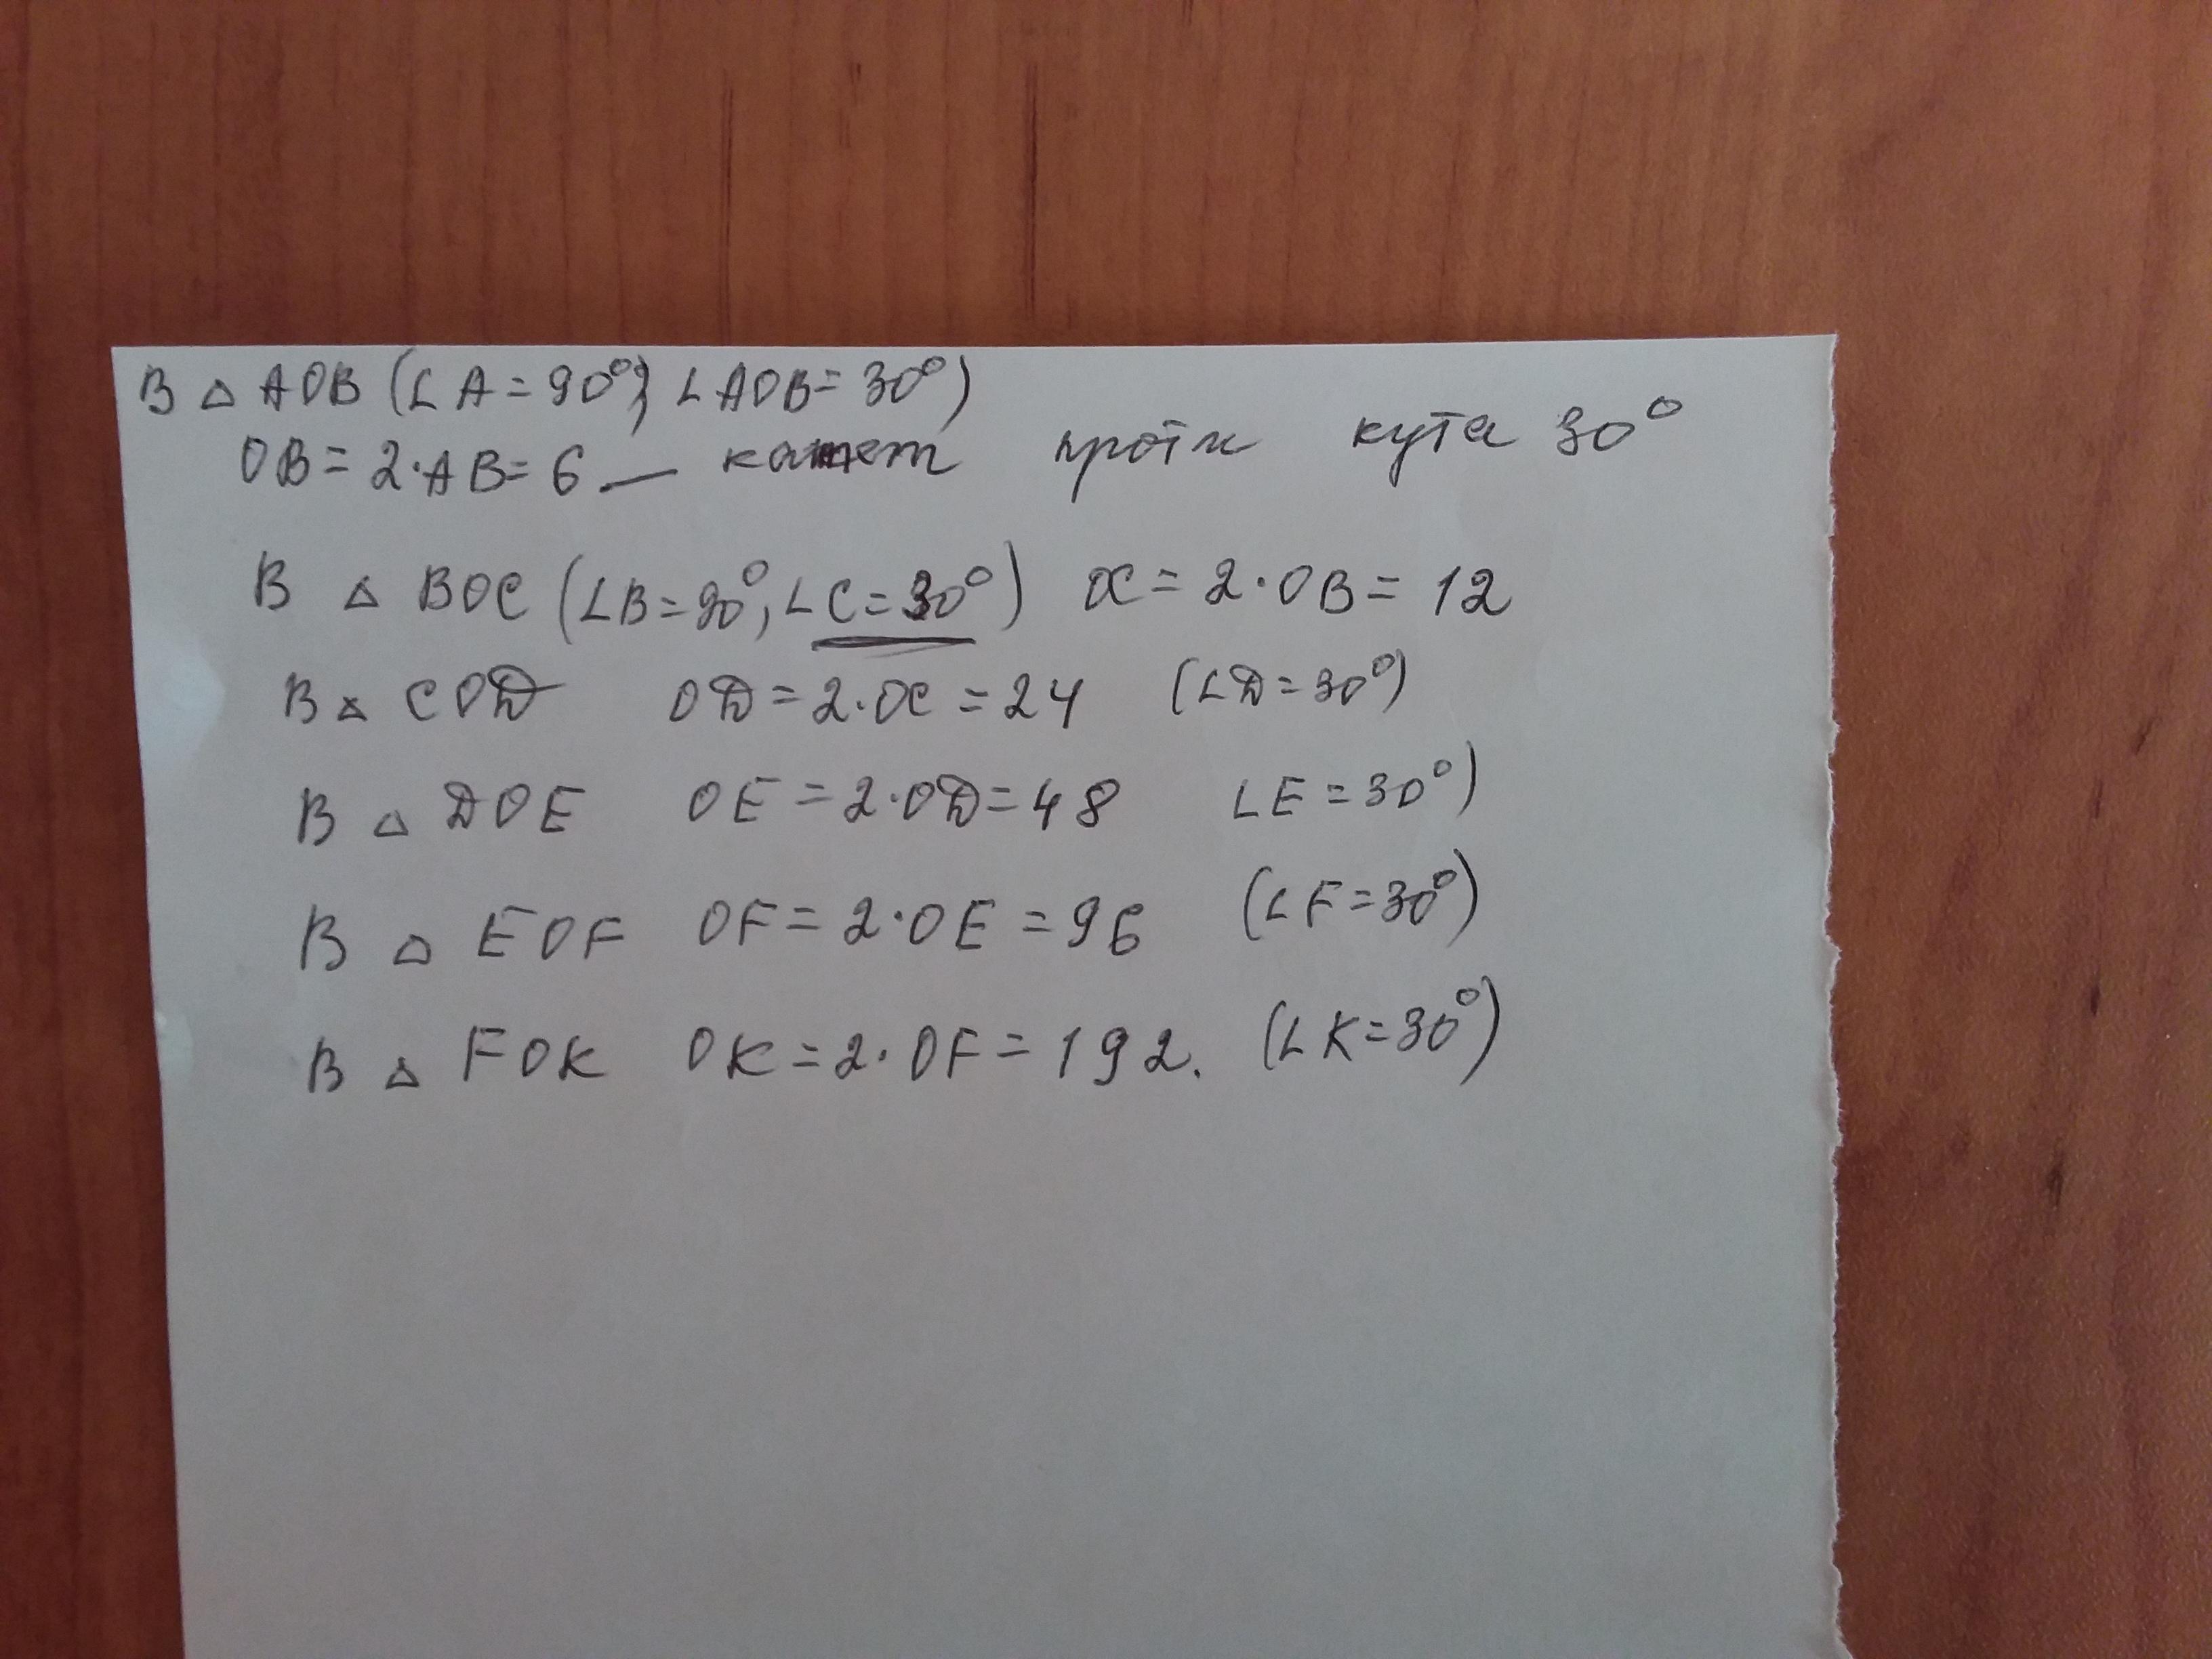 В △ AOB (∠A=90°; ∠AOB=30°)
OB=2·AB=6 — катет проти кута 30°
В △ BOC (∠B=90°, ∠C=30°) OC=2·OB=12
В △ COD OD=2·OC=24 (∠D=30°)
В △ DOE OE=2·OD=48 ∠E=30°)
В △ EOF OF=2·OE=96 (∠F=30°)
В △ FOK OK=2·OF=192. (∠K=30°)